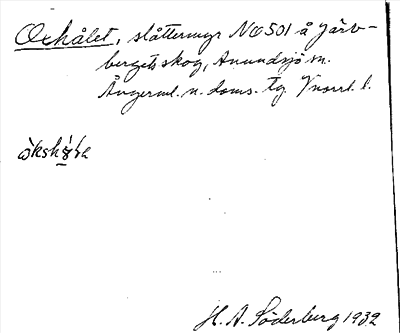 Oxhålet, slåttermyr No 501 å Järv-
bergets skog, Anundsjö sn.
Ångerml. n. doms. tg. Vnorrl. l.
H. A. Söderberg 1932